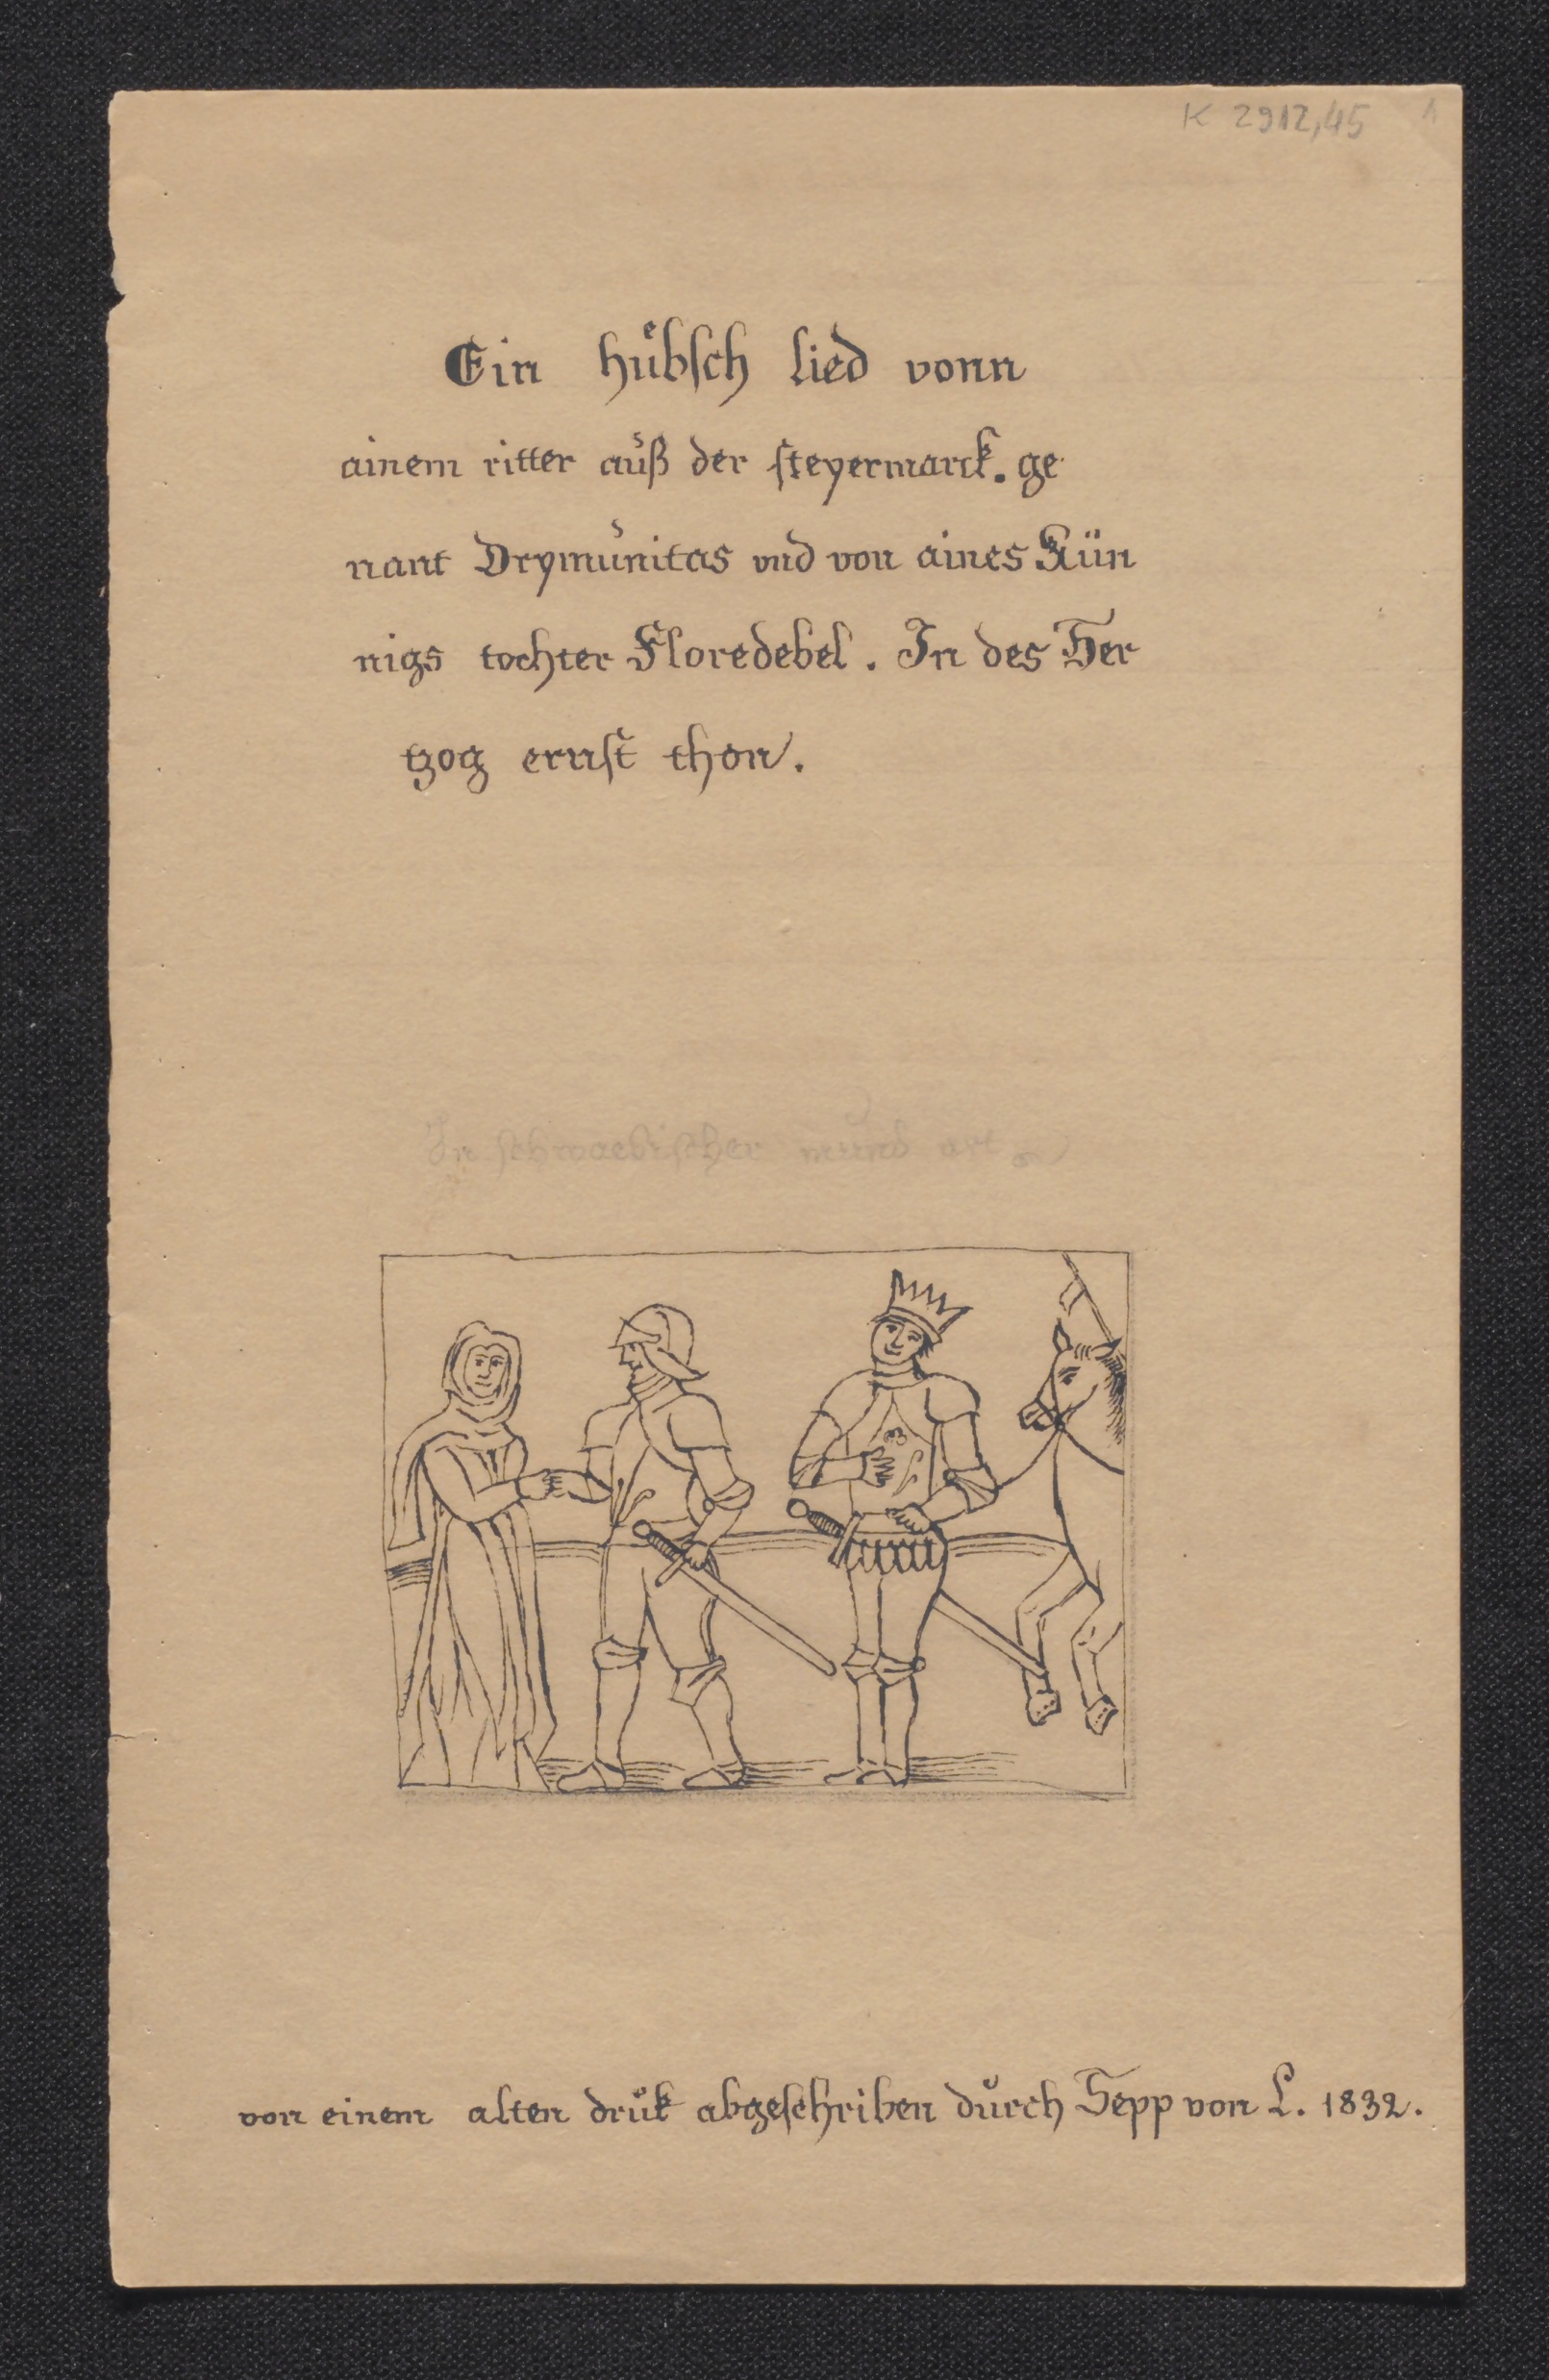 K 2912,45 1
Ein hůbsch lied vonn
ainem ritter auß der steyermarck. ge
nant Drymunitas vnd von aines Kün
nigs tochter Floredebel. In des Her
tzog ernst thon.
In schwaebischer mund art
von einem alten druk abgeschriben durch Sepp von L. 1832.